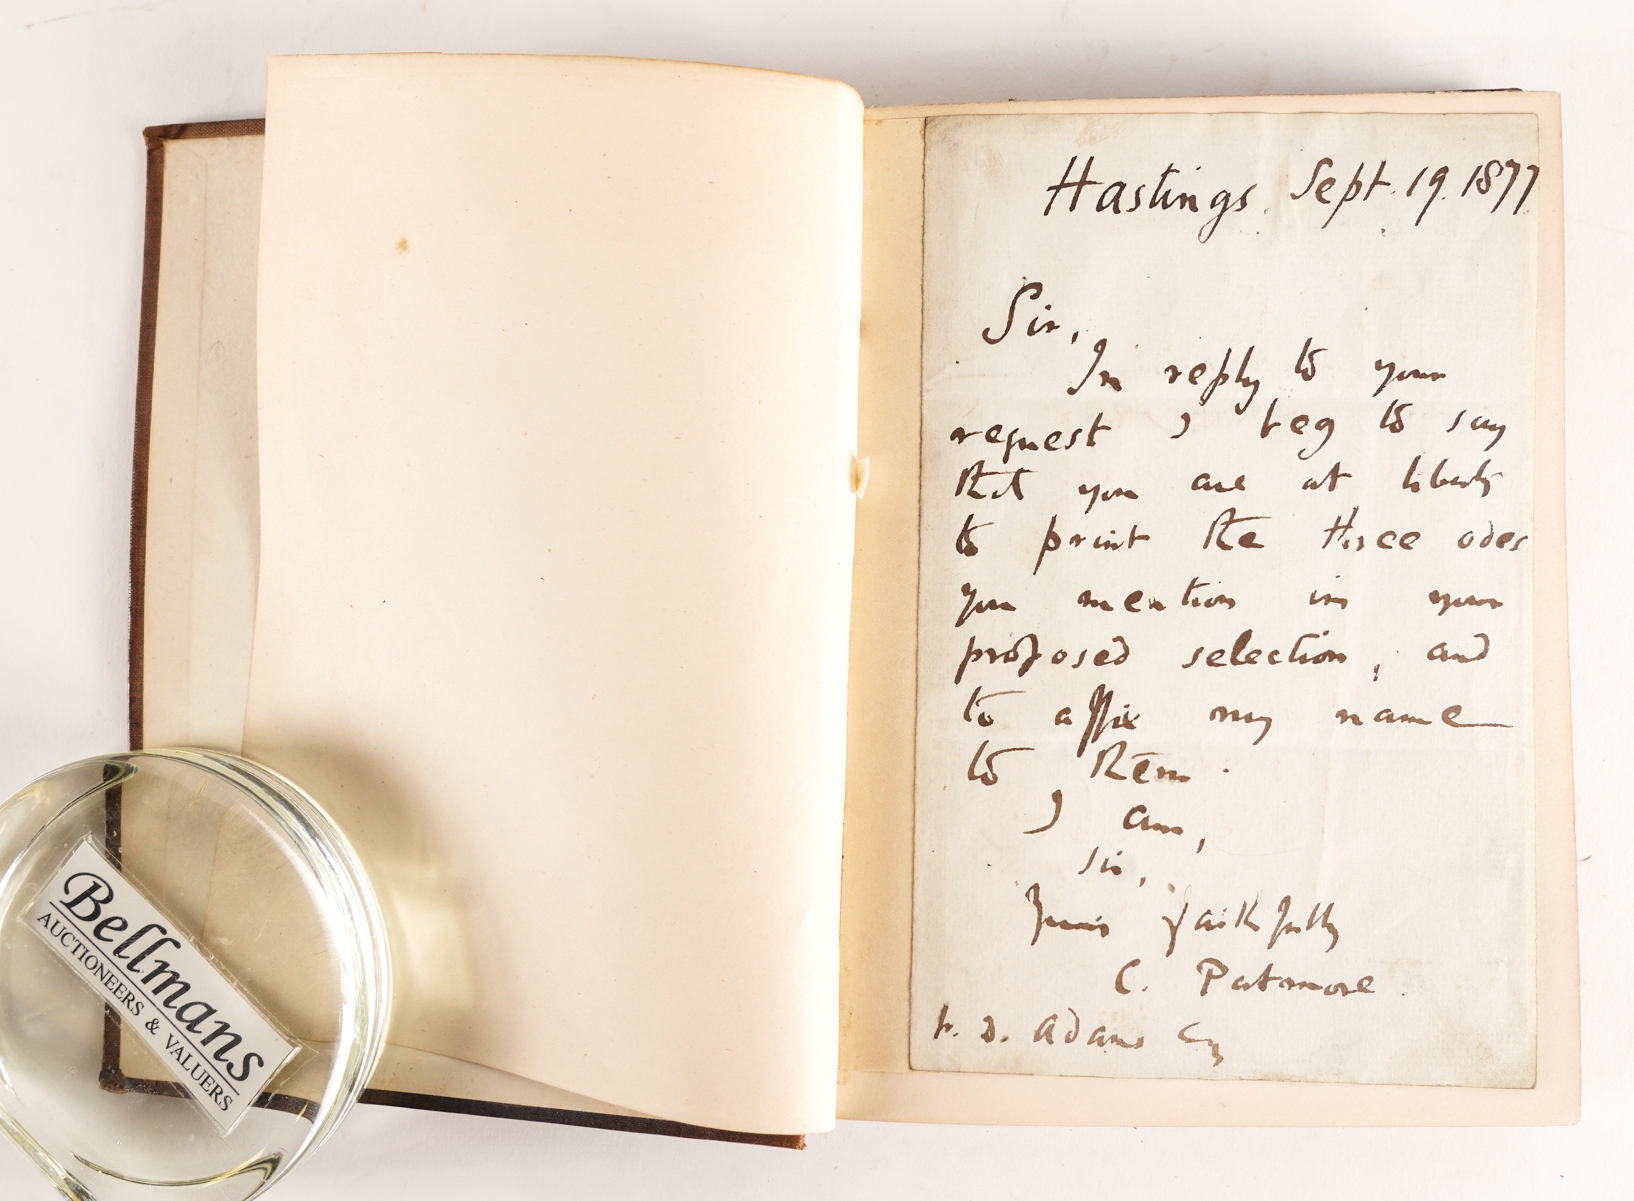 Hastings. Sept. 19. 1877
Sir,
In reply to your
request I beg to say
that you are at liberty
to print the three odes
you mention in your
proposed selection, and
to affix my name
to them.
I am,
Sir,
Yours faithfully
C. Patmore.
D. Adams Esq
Bellmans
AUCTIONEERS & VALUERS